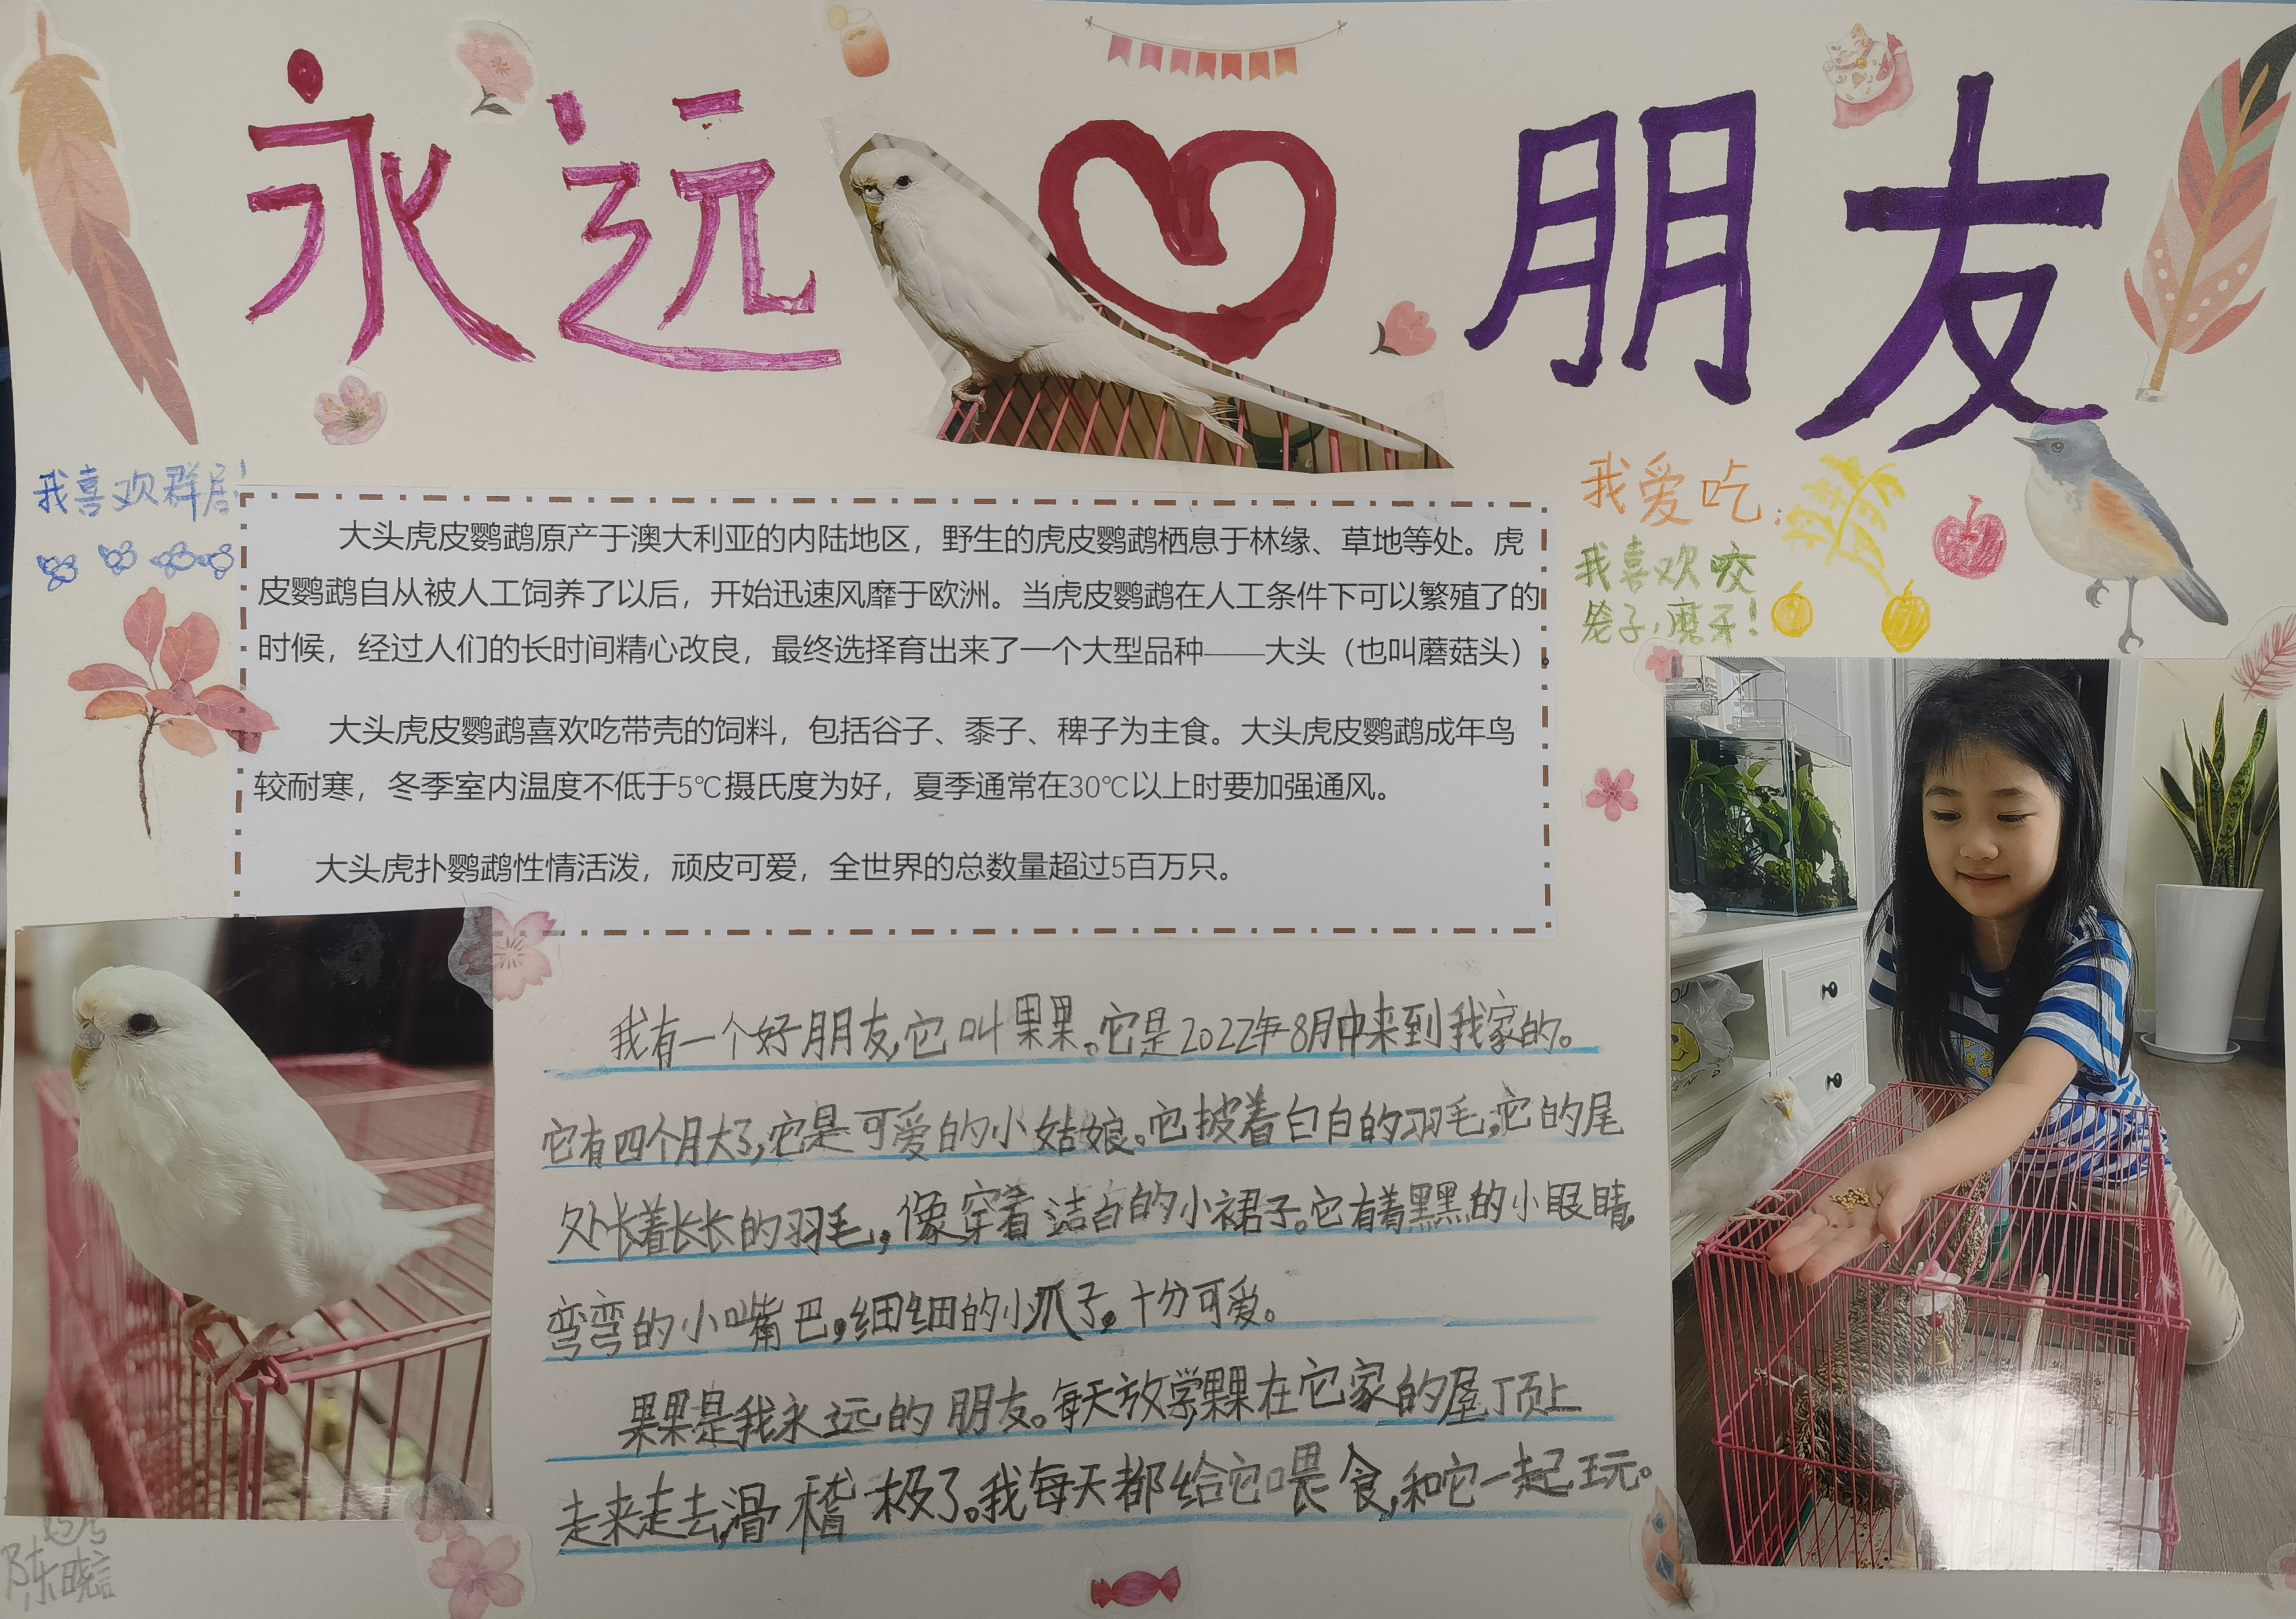 永远朋友
我喜欢群居!
我爱吃:
我喜欢咬
笼子,磨牙!
大头虎皮鹦鹉原产于澳大利亚的内陆地区，野生的虎皮鹦鹉栖息于林缘、草地等处。虎
皮鹦鹉自从被人工饲养了以后，开始迅速风靡于欧洲。当虎皮鹦鹉在人工条件下可以繁殖了的
时候，经过人们的长时间精心改良，最终选择育出来了一个大型品种——大头（也叫蘑菇头）。
大头虎皮鹦鹉喜欢吃带壳的饲料，包括谷子、黍子、稗子为主食。大头虎皮鹦鹉成年鸟
较耐寒，冬季室内温度不低于5℃摄氏度为好，夏季通常在30℃以上时要加强通风。
大头虎扑鹦鹉性情活泼，顽皮可爱，全世界的总数量超过5百万只。
我有一个好朋友,它叫果果。它是2022年8月中来到我家的。
它有四个月大了,它是可爱的小姑娘。它披着白白的羽毛,它的尾
处长着长长的羽毛,像穿着洁白的小裙子。它有着黑黑的小眼睛,
弯弯的小嘴巴,细细的小爪子,十分可爱。
果果是我永远的朋友。每天放学果果在它家的屋顶上
走来走去,滑稽极了。我每天都给它喂食,和它一起玩。